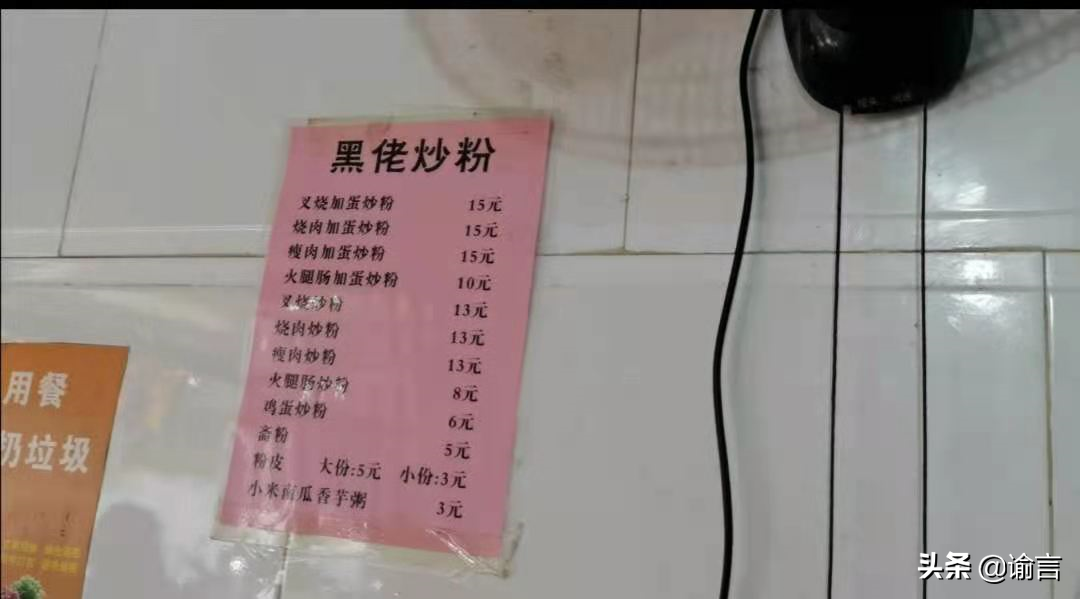 黑佬炒粉
叉烧加蛋炒粉 15元
烧肉加蛋炒粉 15元
瘦肉加蛋炒粉 15元
火腿肠加蛋炒粉 10元
叉烧炒粉 13元
烧肉炒粉 13元
瘦肉炒粉 13元
火腿肠炒粉 8元
鸡蛋炒粉 6元
斋粉 5元
粉皮 大份:5元 小份:3元
小米南瓜香芋粥 3元
用餐
扔垃圾
头条 @谕言